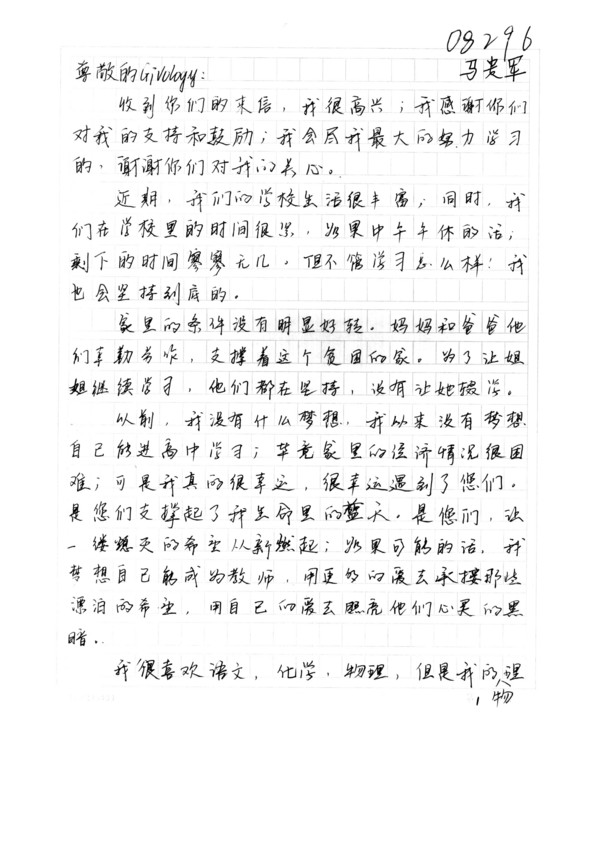 08296
尊敬的Givology: 马贵军
收到你们的来信，我很高兴；我感谢你们
对我的支持和鼓励；我会尽我最大的努力学习
的，谢谢你们对我的关心。
近期，我们的学校生活很丰富；同时，我
们在学校里的时间很紧，如果中午午休的话；
剩下的时间寥寥无几。但不管学习怎么样！我
也会坚持到底的。
家里的条件没有明显好转。妈妈和爸爸他
们辛勤劳作，支撑着这个贫困的家。为了让姐
姐继续学习，他们都在坚持，没有让她辍学。
以前，我没有什么梦想，我从来没有梦想
自己能进高中学习；毕竟家里的经济情况很困
难；可是我真的很幸运，很幸运遇到了您们。
是您们支撑起了我生命里的蓝天。是您们，让
一缕熄灭的希望从新燃起；如果可能的话，我
梦想自己能成为教师，用更多的爱去承接那些
漂泊的希望，用自己的爱去照亮他们心灵的黑
暗。
我很喜欢语文，化学，物理，但是我的理
，物